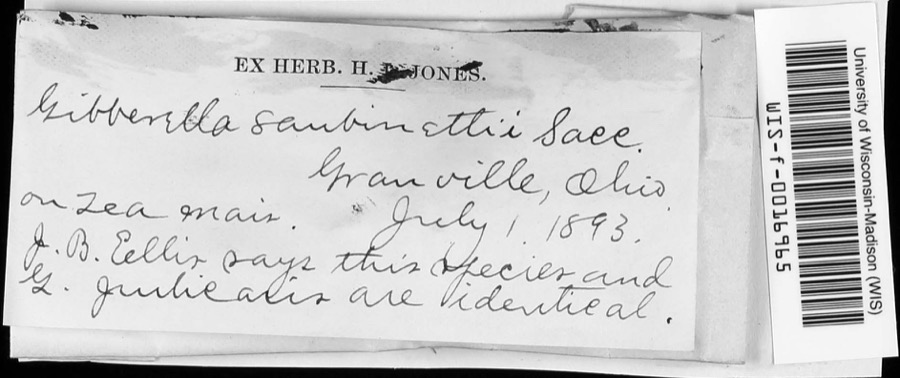 EX HERB. H. JONES.
Gibberella saubinettii Sacc.
Granville, Ohio
on Zea mais. July 1. 1893.
J. B. Eellis says this species and
G. pulicaris are identical.
University of Wisconsin-Madison (WIS)
WIS-f-0016965